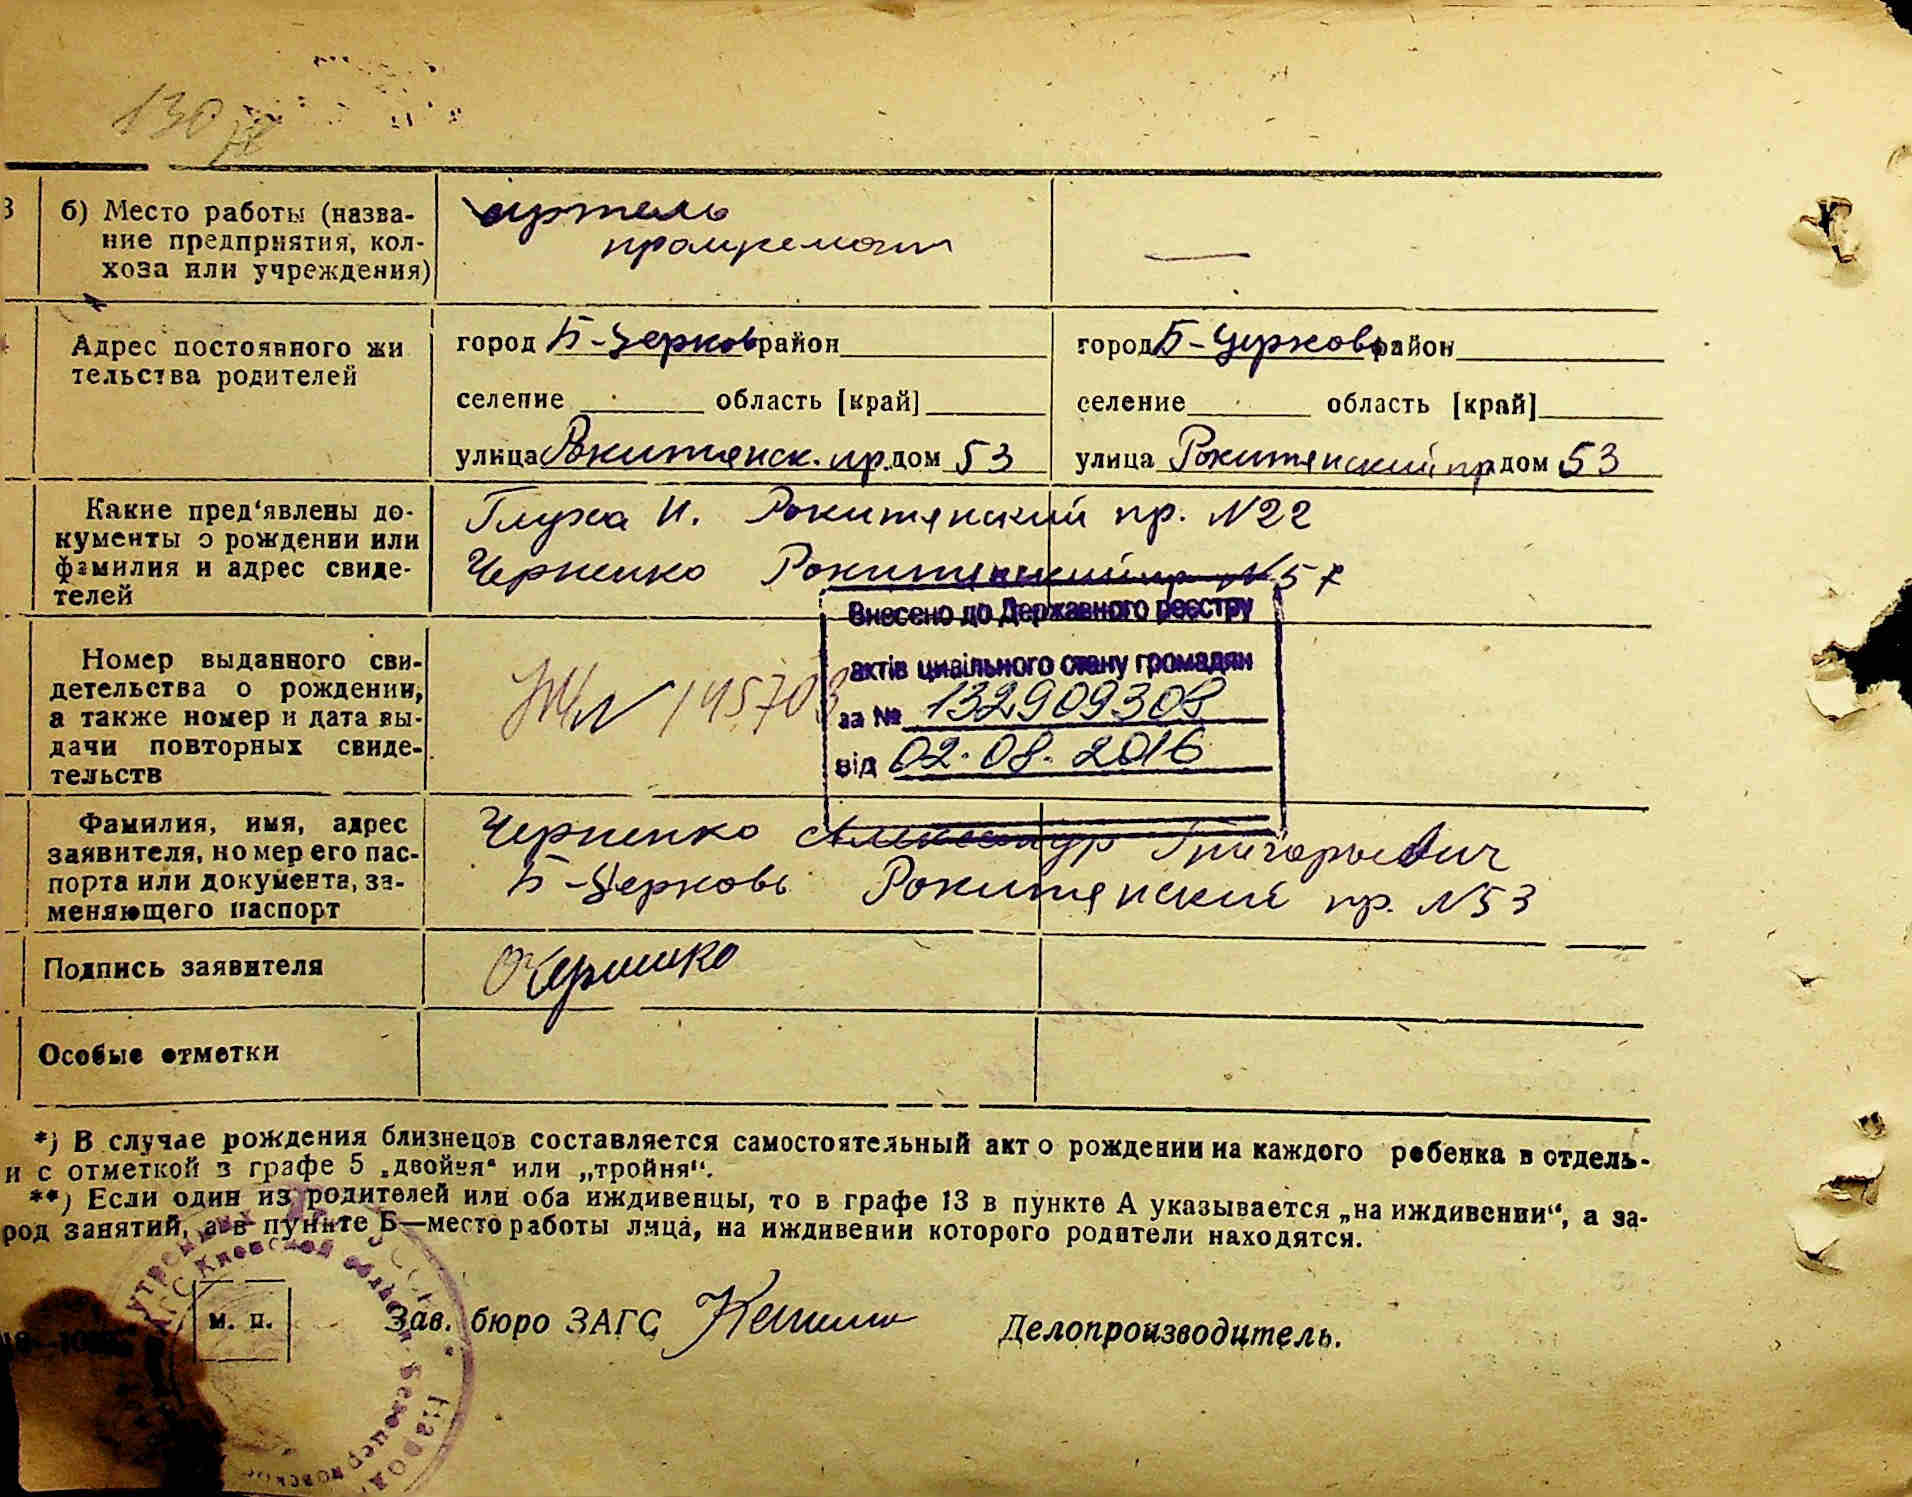 130
б) Место работы (назва-
ние предприятия, кол-
хоза или учреждения)
артель
промремонт
—
Адрес постоянного жи
тельства родителей
город Б-Церковь район
город Б-Церковь район
селение область [край]
селение область [край]
улица Рокитянск. пр. дом 53
улица Рокитянский пр дом 53
Какие пред'явлены до-
кументы о рождении или
фамилия и адрес свиде-
телей
Глуха И. Рокитянский пр. N22
Черненко Рокитянский пр N57
Номер выданного сви-
детельства о рождении,
а также номер и дата вы-
дачи повторных свиде-
тельств
N 145703
Внесено до Державного реєстру
актів цивільного стану громадян
за № 132909308
від 02.08.2016
Фамилия, имя, адрес
заявителя, номер его пас-
порта или документа, за-
меняющего паспорт
Черненко Александр Григорьевич
Б-Церковь Рокитянский пр. N53
Подпись заявителя
Особые отметки
*) В случае рождения близнецов составляется самостоятельный акт о рождении на каждого ребенка в отдель-
и с отметкой в графе 5 „двойня“ или „тройня“.
**) Если один из родителей или оба иждивенцы, то в графе 13 в пункте А указывается „на иждивении“, а за-
род занятий, а в пункте Б—место работы лица, на иждивении которого родители находятся.
м. п.
Зав. бюро ЗАГС
Делопроизводитель.
Киевской области